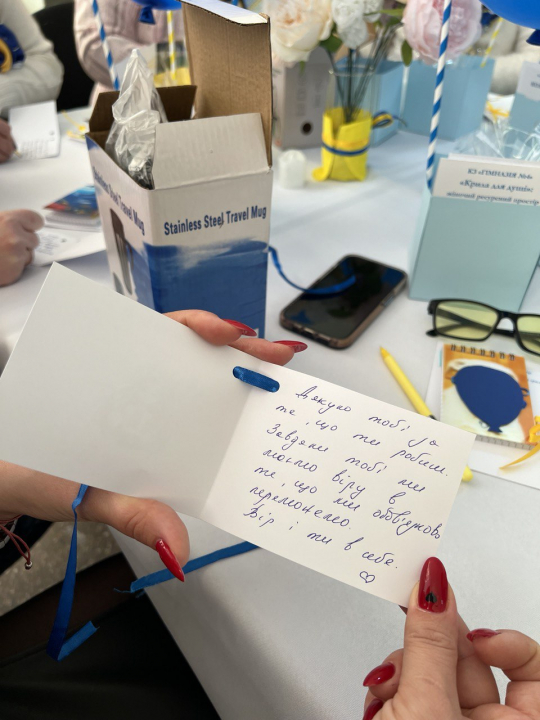 Stainless Steel Travel Mug
Stainless Steel Travel Mug
КЗ «ГІМНАЗІЯ №6»
«Крила для душі»:
жіночий ресурсний простір
Дякую тобі за
те, що ти робиш.
Завдяки тобі ми
маємо віру в
те, що ми обов'язково
переможемо.
Вір і ти в себе.
♡